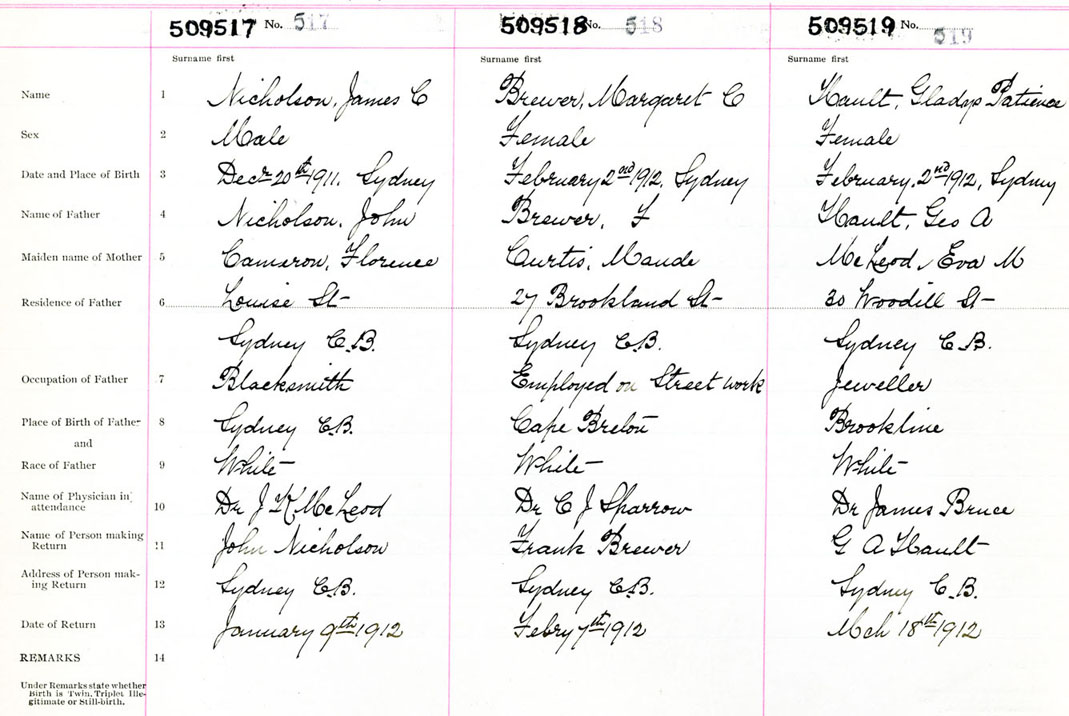 509517 No. 517 509518 No. 518 509519 No. 519
Surname first Surname first Surname first
Name 1 Nicholson, James C Brewer, Margaret C Hault, Gladys Patience
Sex 2 Male Female Female
Date and Place of Birth 3 Decr 20th 1911. Sydney February 2nd 1912, Sydney February, 2nd 1912, Sydney
Name of Father 4 Nicholson, John Brewer, F Hault, Geo A
Maiden name of Mother 5 Cameron, Florence Curtis, Maude McLeod, Eva M
Residence of Father 6 Louise St- 27 Brookland St- 30 Woodill St-
Sydney C.B. Sydney C.B. Sydney C.B.
Occupation of Father 7 Blacksmith Employed on Street work Jeweller
Place of Birth of Father 8 Sydney C.B. Cape Breton Brookline
and
Race of Father 9 White White White
Name of Physician in
attendance 10 Dr J K McLeod Dr C J Sparrow Dr James Bruce
Name of Person making
Return 11 John Nicholson Frank Brewer G A Hault
Address of Person mak-
ing Return 12 Sydney C.B. Sydney C.B. Sydney C.B.
Date of Return 13 January 9th 1912 Febry 7th 1912 Mch 18th 1912
REMARKS 14
Under Remarks state whether
Birth is Twin, Triplet Ille-
gitimate or Still-birth.